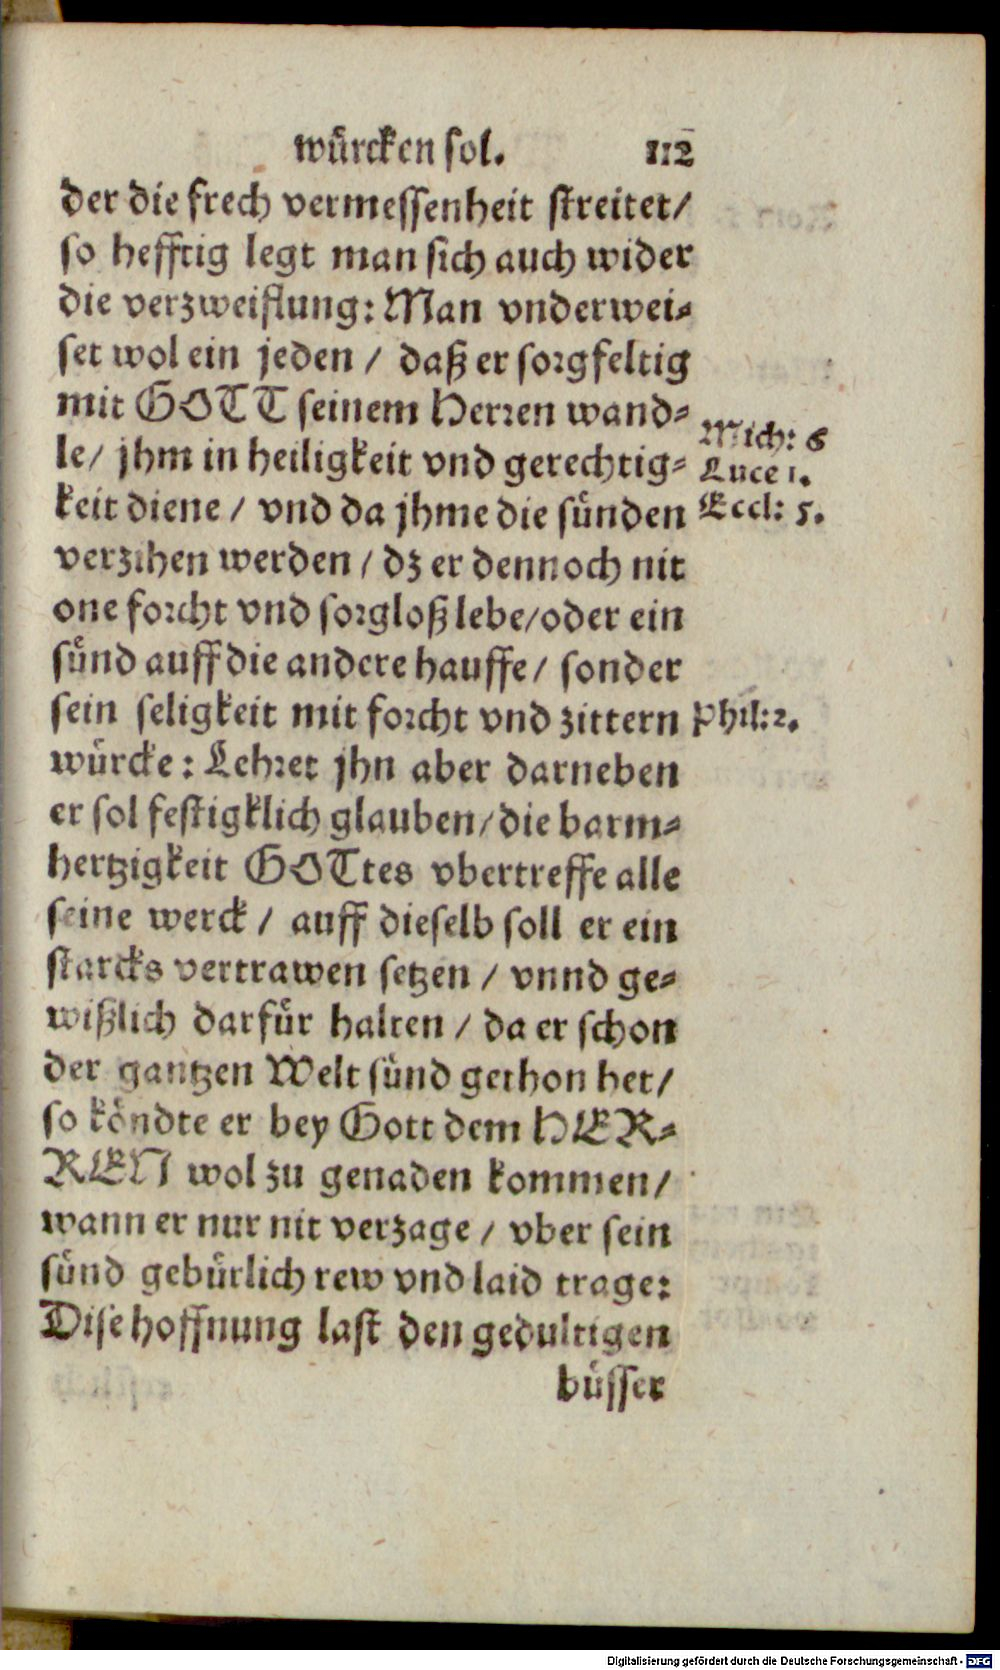 würcken sol. 112
der die frech vermessenheit streitet/
so hefftig legt man sich auch wider
die verzweiflung: Man vnderwei-
set wol ein jeden / daß er sorgfeltig
mit GOTT seinem Herren wand-
le/ jhm in heiligkeit vnd gerechtig-
keit diene / vnd da jhme die sünden
verzihen werden / dz er dennoch nit
one forcht vnd sorgloß lebe/oder ein
sünd auff die andere hauffe/ sonder
sein seligkeit mit forcht vnd zittern
würcke: Lehret jhn aber darneben
er sol festigklich glauben/die barm-
hertzigkeit GOTtes vbertreffe alle
seine werck / auff dieselb soll er ein
starcks vertrawen setzen / vnnd ge-
wißlich darfür halten / da er schon
der gantzen Welt sünd gethon het/
so köndte er bey Gott dem HER-
REN wol zu genaden kommen/
wann er nur nit verzage / vber sein
sünd gebürlich rew vnd laid trage:
Dise hoffnung last den gedultigen
büsser
Mich: 6
Luce 1.
Eccl: 5.
Phil: 2.
Digitalisierung gefördert durch die Deutsche Forschungsgemeinschaft - DFG